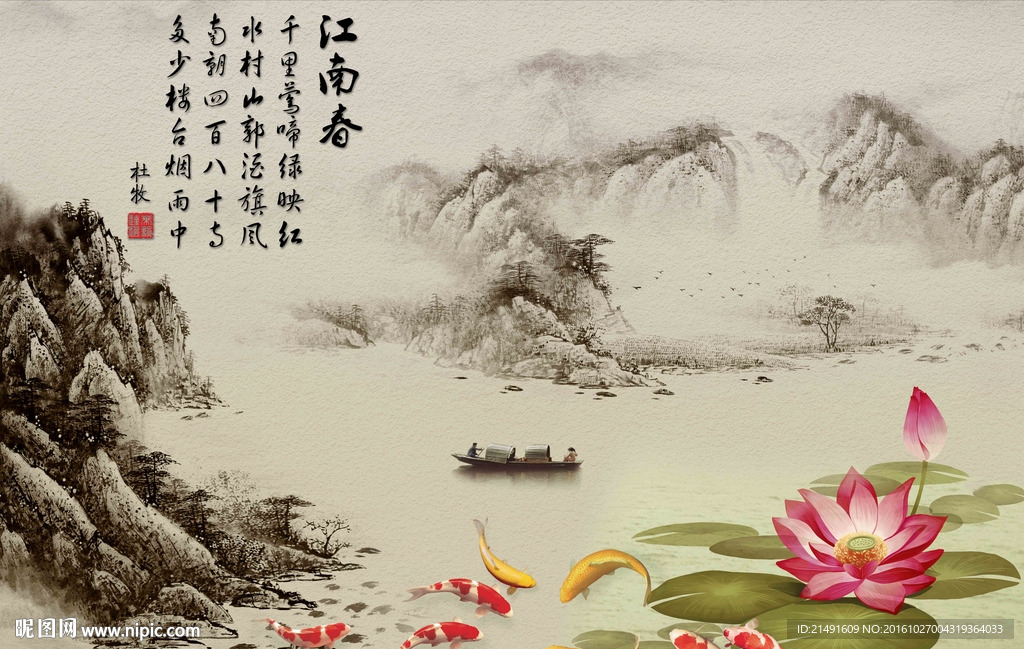 江南春
千里莺啼绿映红
水村山郭酒旗风
南朝四百八十寺
多少楼台烟雨中
杜牧
昵图网 www.nipic.com
ID:21491609 NO:20161027004319364033